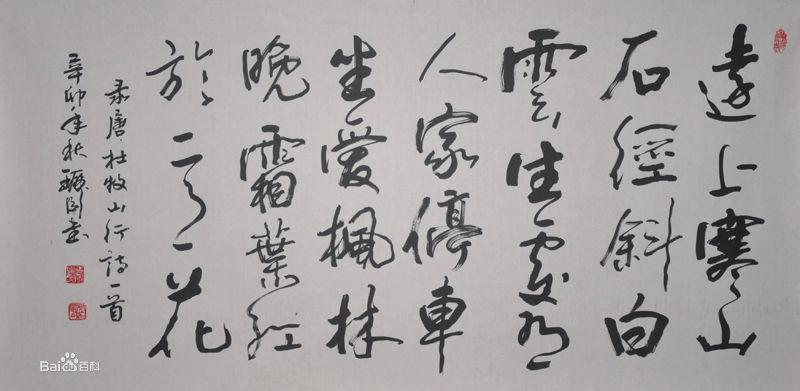 遠上寒山
石徑斜白
雲生處有
人家停車
坐愛楓林
晚霜葉紅
於二月花
录唐杜牧山行诗一首
辛卯年秋
Bai百科